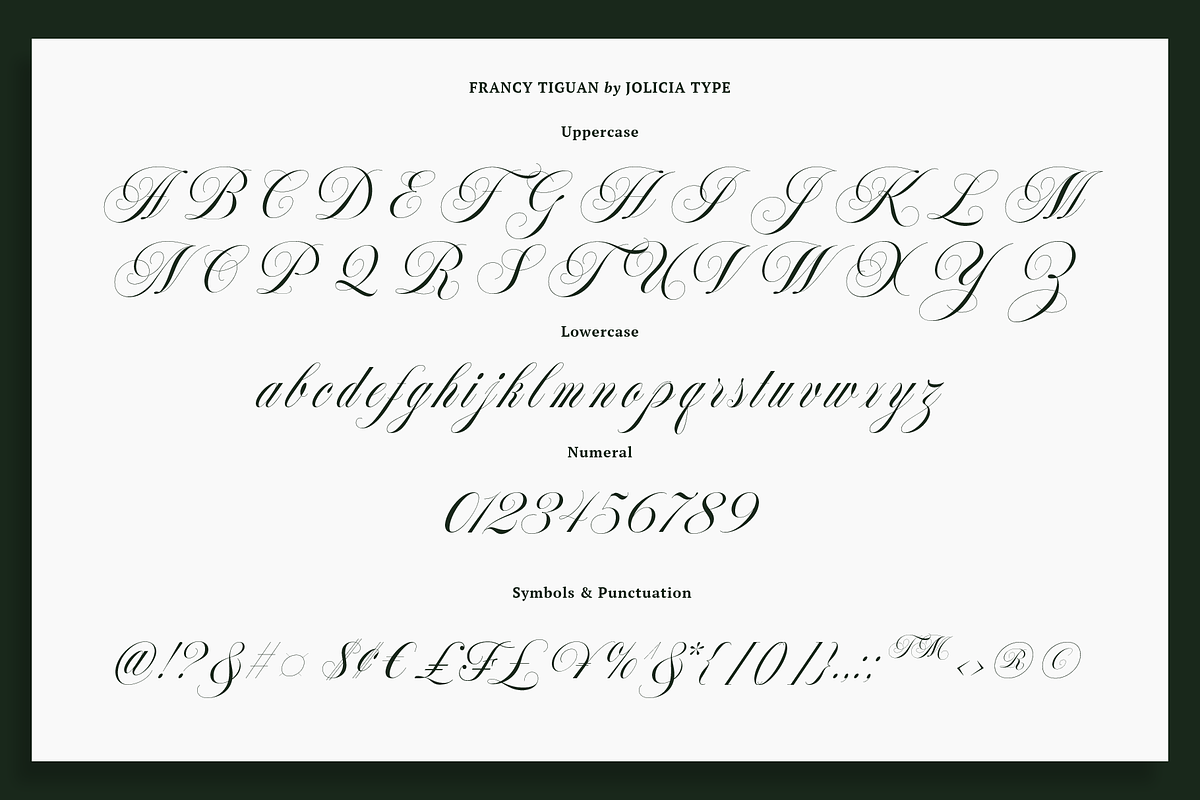 FRANCY TIGUAN by JOLICIA TYPE
Uppercase
A B C D E F G H I J K L M
N O P Q R S T U V W X Y Z
Lowercase
a b c d e f g h i j k l m n o p q r s t u v w x y z
Numeral
0 1 2 3 4 5 6 7 8 9
Symbols & Punctuation
@ ! ? & # ¤ $ ¢ € £ ₣ ₤ ¥ % ^ & * { / ( ) / } . , : ; ™ < > ® ©